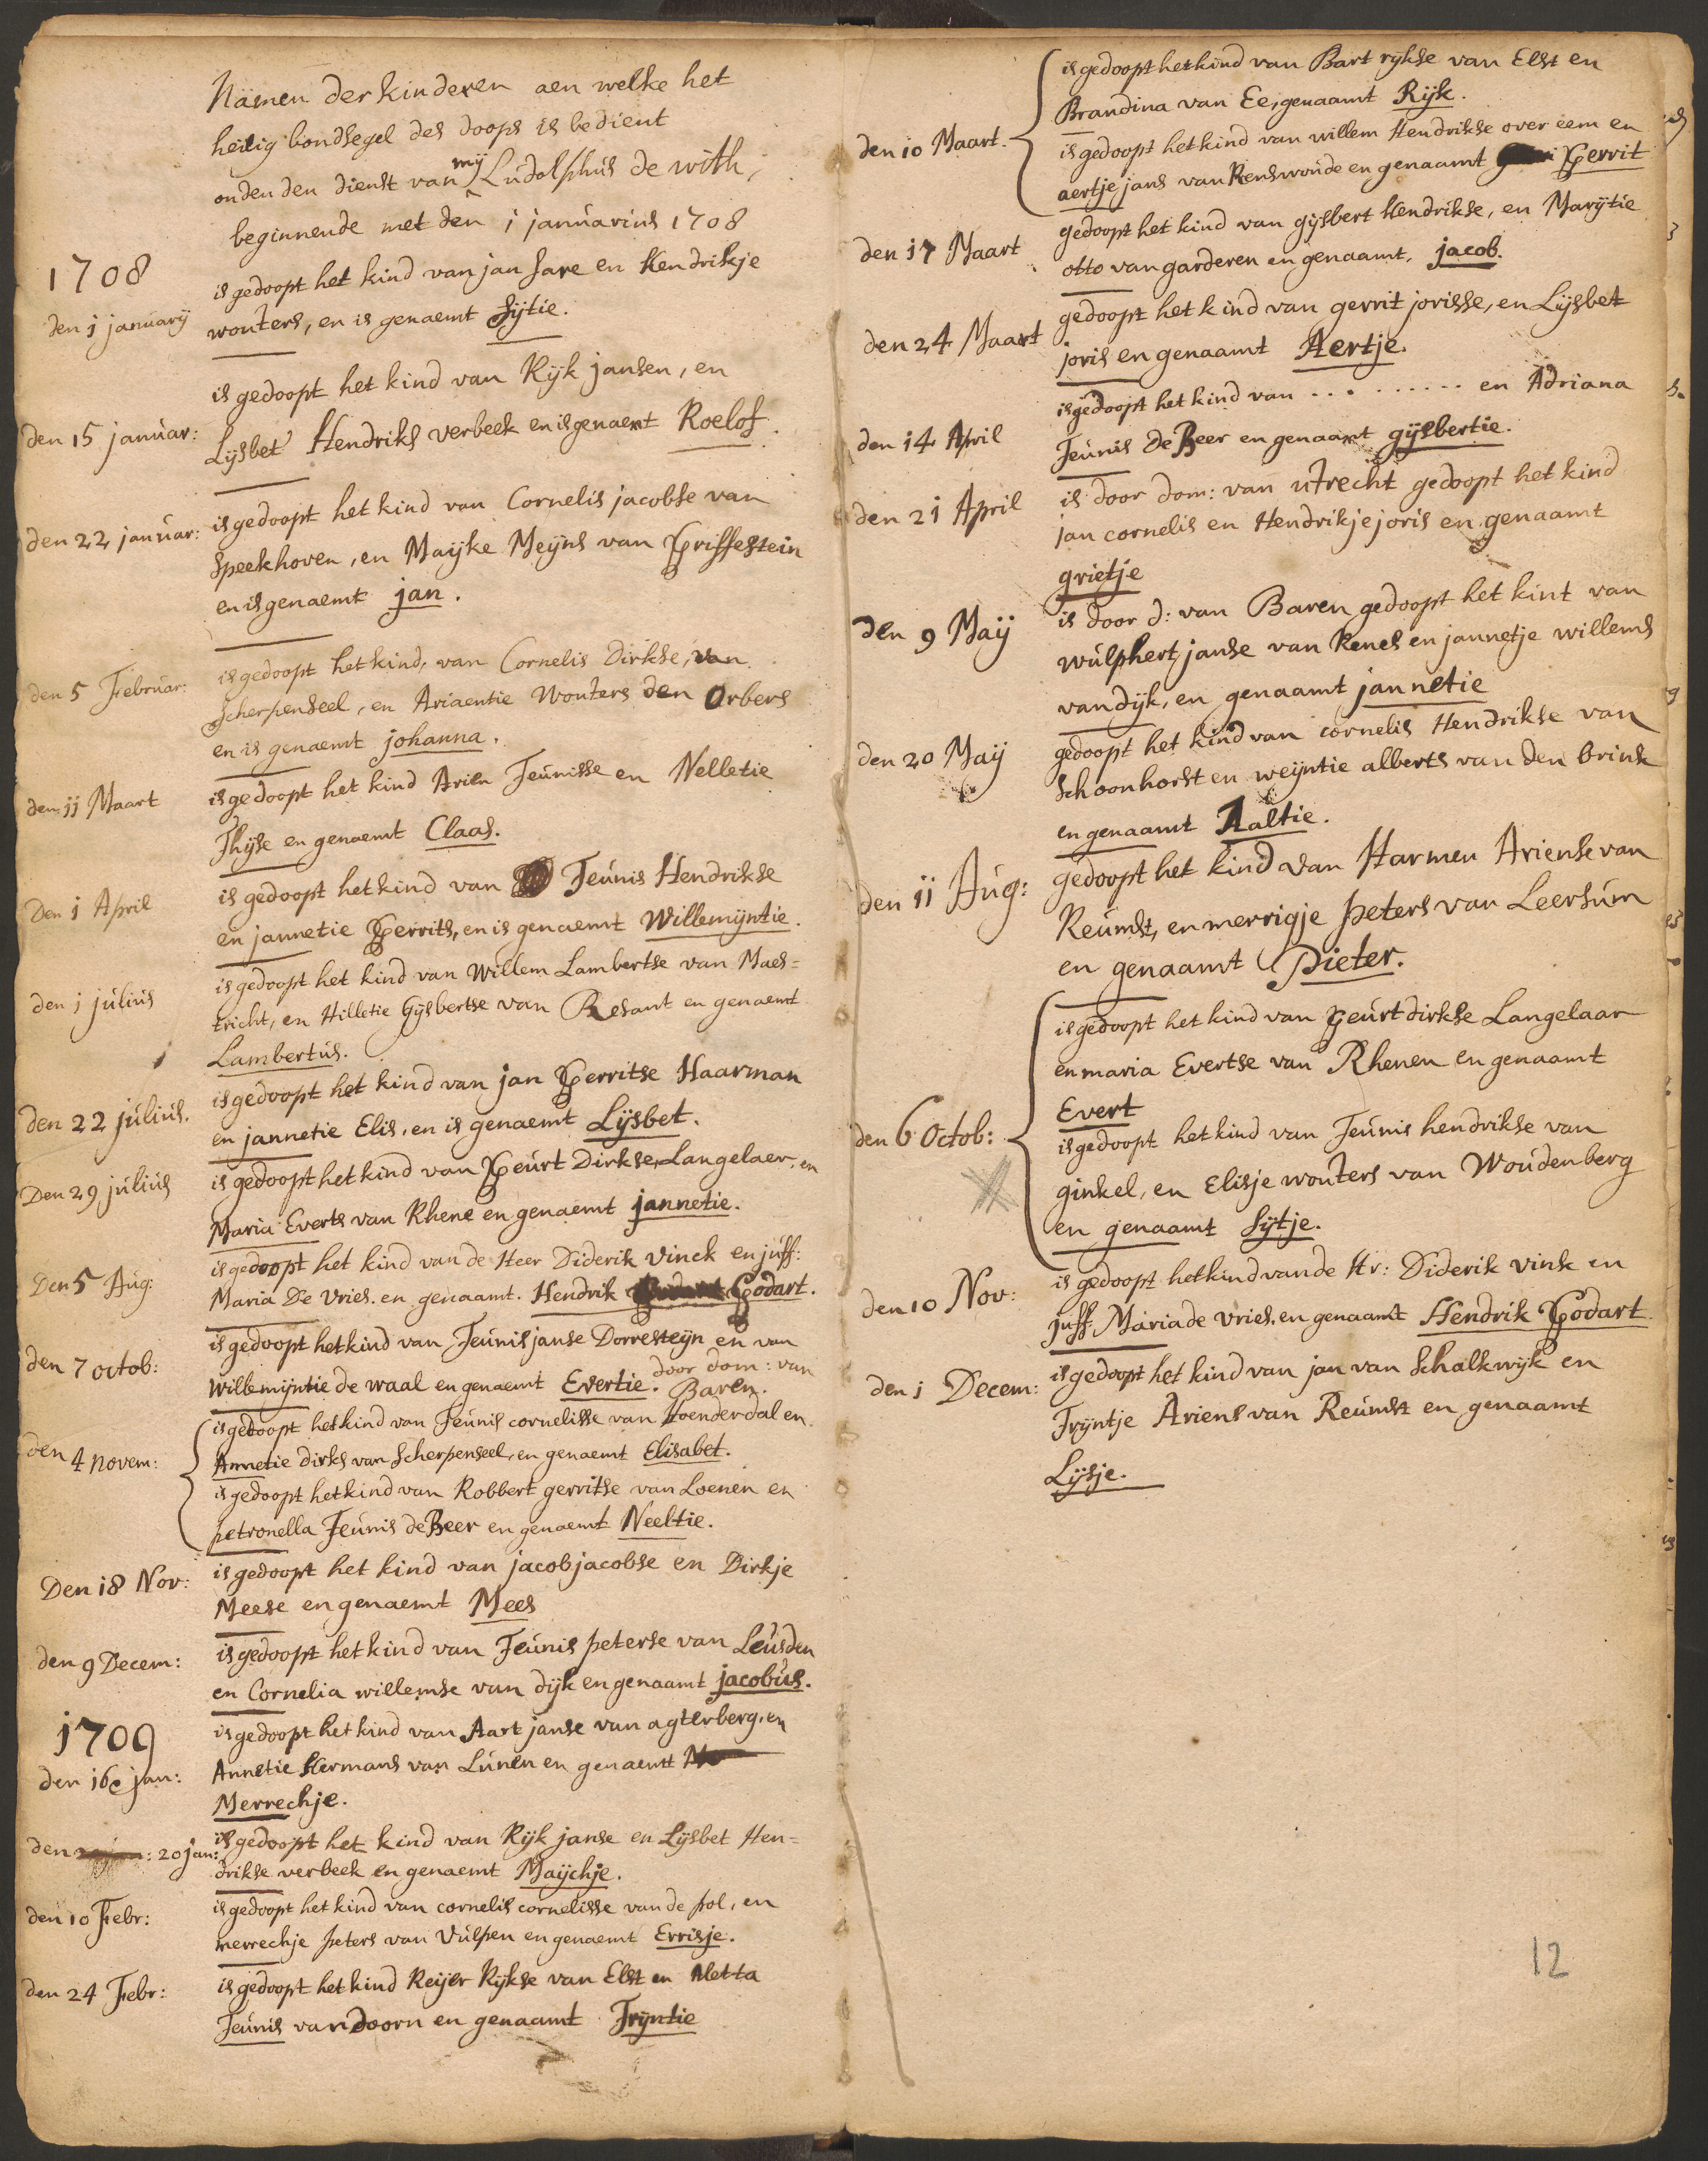 Namen der kinderen aen welke het
heilig bondsegel des doops is bedient
onden den dienst van mij Ludolphus de with,
beginnende met den 1 januarius 1708
1708
den 1 januarij
is gedoopt het kind van jan sare en Hendrikje
wouters, en is genaemt Sijtie.
den 15 januar:
is gedoopt het kind van Rijk jansen, en
Lijsbet Hendriks verbeek en is genaemt Roelof.
den 22 januar:
is gedoopt het kind van Cornelis jacobse van
Speekhoven, en Maijke Meijns van Griffestein
en is genaemt jan.
den 5 Februar:
is gedoopt het kind, van Cornelis Dirkse, van
Scherpenseel, en Ariaentie Wouters den Orbers
en is genaemt johanna.
den 11 Maart
is gedoopt het kind Arien Teunisse en Nelletie
Thijse en genaemt Claas.
Den 1 April
is gedoopt het kind van Teunis Hendrikse
en jannetie Gerrits, en is genaemt Willemijntie.
den 1 julius
is gedoopt het kind van Willem Lambertse van Maes=
tricht, en Hilletie Gijsbertse van Resant en genaemt
Lambertus.
den 22 julius.
is gedoopt het kind van jan Gerritse Haarman
en jannetie Elis, en is genaemt Lijsbet.
Den 29 julius
is gedoopt het kind van Geurt Dirkse, Langelaer, en
Maria Everts van Rhene en genaemt jannetie.
Den 5 Aug:
is gedoopt het kind van de Heer Diderik Vinck en juff:
Maria De Vries. en genaamt. Hendrik Godart.
den 7 octob:
is gedoopt het kind van Teunis janse Dorresteijn en van
Willemijntie de waal en genaemt Evertie. door dom: van
Baren.
den 4 novem:
is gedoopt het kind van Teunis cornelisse van Hoenderdal en
Annetie dirks van Scherpenseel, en genaemt Elisabet.
is gedoopt het kind van Robbert gerritse van Loenen en
petronella Teunis de Beer en genaemt Neeltie.
Den 18 Nov:
is gedoopt het kind van jacob jacobse en Dirkje
Meese en genaemt Mees
den 9 Decem:
is gedoopt het kind van Teunis peterse van Leusden
en Cornelia willemse van dijk en genaamt jacobus.
1709
den 16e jan:
is gedoopt het kind van Aart janse van agterberg, en
Annetie Hermans van Lunen en genaemt
Merrechje.
den : 20 jan:
is gedoopt het kind van Rijk janse en Lijsbet Hen=
drikse verbeek en genaemt Maijchje.
den 10 Febr:
is gedoopt het kind van cornelis cornelisse van de pol, en
merrechje peters van Vulpen en genaemt Errisje.
den 24 Febr:
is gedoopt het kind Reijer Rijkse van Elst en Metta
Teunis van Doorn en genaamt Trijntie
den 10 Maart.
is gedoopt het kind van Bart rijkse van Elst en
Brandina van Ee, genaamt Rijk.
is gedoopt het kind van willem Hendrikse over eem en
aertje jans van Renswoude en genaamt Gerrit
den 17 Maart
gedoopt het kind van gijsbert Hendrikse, en Marijtie
otto van garderen en genaamt, jacob.
den 24 Maart
gedoopt het kind van gerrit jorisse, en Lijsbet
joris en genaamt Aertje.
den 14 April
is gedoopt het kind van . . . . . . . . . en Adriana
Teunis De Beer en genaamt gijsbertie.
den 21 April
is door dom: van utrecht gedoopt het kind
jan cornelis en Hendrikje joris en genaamt
grietje
den 9 Maij
is door d: van Baren gedoopt het kint van
wulphert janse van Renes en jannetje willems
van dijk, en genaamt jannetie
den 20 Maij
gedoopt het kind van cornelis Hendrikse van
Schoonhorst en weijntie alberts van den brink
en genaamt Aaltie.
den 11 Aug:
gedoopt het kind van Harmen Ariense van
Reumst, en merrigje peters van Leersum
en genaamt Pieter.
den 6 Octob:
is gedoopt het kind van Geurt dirkse Langelaar
en maria Evertse van Rhenen en genaamt
Evert
is gedoopt het kind van Teunis hendrikse van
ginkel, en Elisje wouters van Woudenberg
en genaamt Sijtje.
den 10 Nov:
is gedoopt het kind van de Hr: Diderik Vink en
juff. Maria de Vries. en genaamt Hendrik Godart
den 1 Decem:
is gedoopt het kind van jan van Schalkwijk en
Trijntje Ariens van Reumst en genaamt
Lijsje.
12